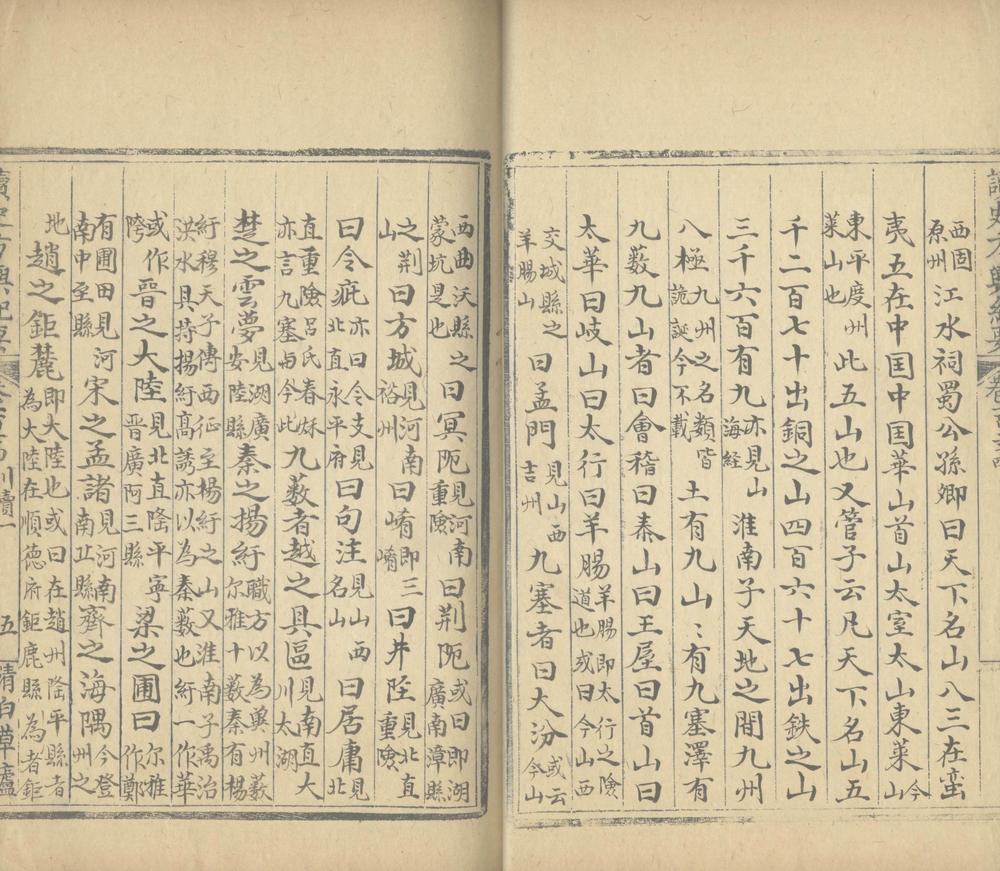 西固原州江水祠蜀公孫卿曰天下名山八三在蛮
夷五在中国中国華山首山太室太山東萊今山
東平度州萊山也此五山也又管子云凡天下名山五
千二百七十出銅之山四百六十七出鉄之山
三千六百有九亦見山海経淮南子天地之間九州
八極九州之名類皆詭誕今不載土有九山〻有九塞澤有
九藪九山者曰會稽曰泰山曰王屋曰首山曰
太華曰岐山曰太行曰羊膓羊膓即太行之險道也或曰今山西
交城縣之羊膓山曰孟門見山西吉州九塞者曰大汾或云今山
西曲沃縣之蒙坑是也曰冥阨見河南重險曰荆阨或曰即湖廣南漳縣
之荆山曰方城見河南裕州曰崤即三崤曰井陘見北直重險
曰令疵亦曰令支見北直永平府曰句注見山西名山曰居庸見北
直重險呂氏春秋亦言九塞与今此九藪者越之具區見南直大川太湖
楚之雲夢見湖廣安陸縣秦之揚紆職方以為兾州藪尔雅十藪秦有楊
紆穆天子傳西征至楊紆之山又淮南子禹治洪水具持揚紆髙誘亦以為秦藪也紆一作華
或作陓晉之大陸見北直隆平寧晋廣阿三縣梁之圃曰尔雅作鄭
有圃田見河南中至縣宋之孟諸見河南南丘縣齊之海隅今登州之
地趙之鉅麓即大陸也或曰在趙州隆平縣者為大陸在順德府鉅鹿縣為者鉅
讀史方輿紀要 川瀆一 五 清白草廬